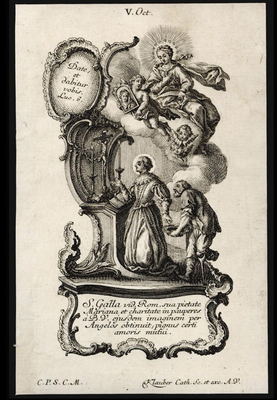 V. Oct.
Date
et
dabitur
vobis.
Luc. 6.
S. Galla vid. Rom. sua pietate
Mariana et charitate in pauperes
a B.V. ejusdem imaginem per
Angelos obtinuit, pignus certi
amoris mutui.
C. P. S. C. M.
Klauber Cath. Sc. et exc. A.V.